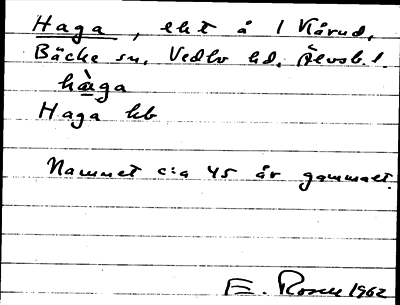 Haga, eht å 1 Kårud,
Bäcke sn, Vedbo hd, Älvsb. l.
hàga
Haga hb
Namnet c:a 45 år gammalt.
E. Rosen 1962